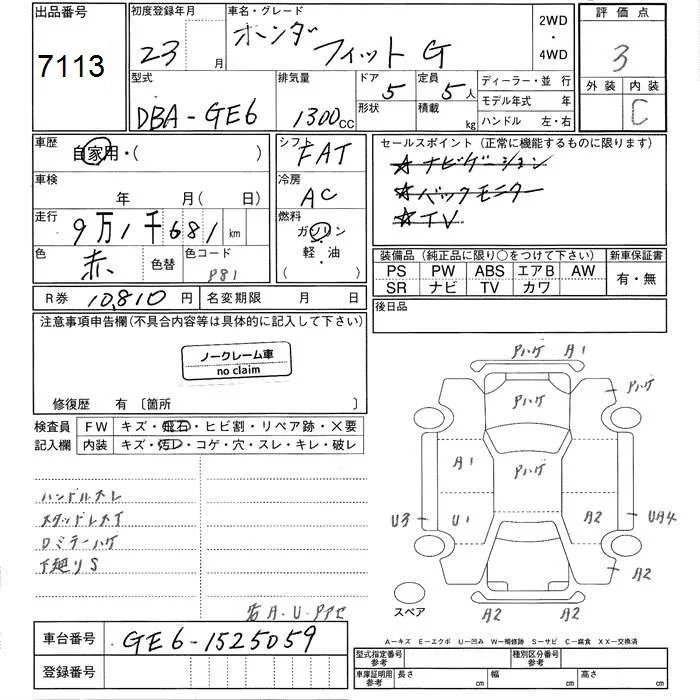 出品番号
7113
初度登録年月
23 月
車名・グレード
ホンダ フィット G
2WD
・
4WD
評価点
3
外装 内装
C
型式
DBA-GE6
排気量
1300cc
ドア
5
形状
定員
5人
積載
kg
ディーラー・並 行
モデル年式 年
ハンドル 左・右
車歴
自家用・( )
シフト
FAT
セールスポイント(正常に機能するものに限ります)
☆ ナビゲーション
☆ バックモニター
☆ TV
車検
年 月( 日)
冷房
AC
走行
9万1千681km
燃料
ガソリン
・
軽・油
( )
色
赤
色替
色コード
P81
装備品(純正品に限り〇をつけて下さい)
PS PW ABS エアB AW
SR ナビ TV カワ
新車保証書
有・無
R券 10,810円
名変期限 月 日
後日品
注意事項申告欄(不具合内容等は具体的に記入して下さい)
ノークレーム車
no claim
修復歴 有〔箇所 〕
検査員
記入欄
FW キズ・飛石・ヒビ割・リペア跡・X要
内装 キズ・汚レ・コゲ・穴・スレ・キレ・破レ
ハンドルスレ
スタッドレスタイ
ロミラーハゲ
下廻りS
Pハゲ A1
Pハゲ Pハゲ
A1 Pハゲ
U3 U1 A2 UA4
A2
A2 A2
スペア
A-キズ E-エクボ U-凹み W-補修跡 S-サビ C-腐食 XX-交換済
車台番号 GE6-1525059
登録番号
型式指定番号
参考
種別区分番号
参考
車庫証明用
参考
長さ cm 幅 cm 高さ cm